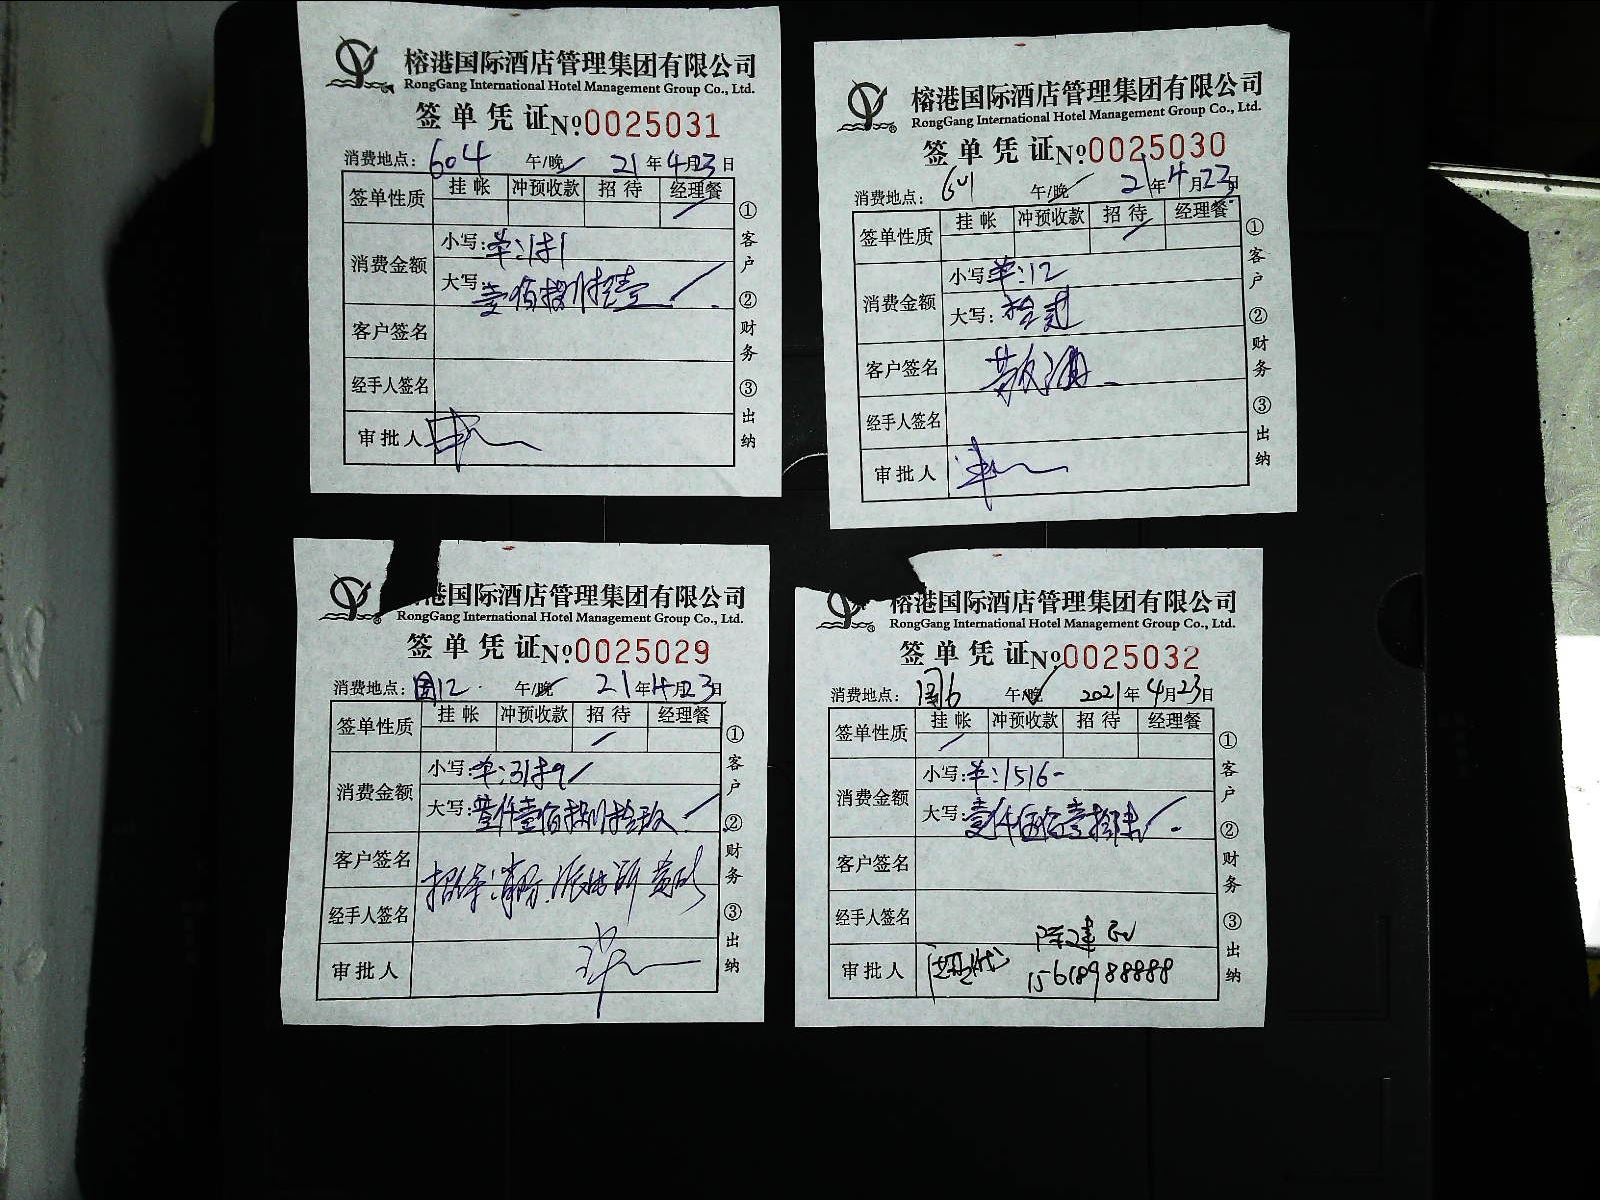 榕港国际酒店管理集团有限公司
RongGang International Hotel Management Group Co., Ltd.
签单凭证 №0025031
消费地点: 604 午/晚 21年4月23日
签单性质 挂帐 冲预收款 招待 经理餐
消费金额 小写:
大写: 壹佰捌拾壹
客户签名
经手人签名
审批人
①客户 ②财务 ③出纳
榕港国际酒店管理集团有限公司
RongGang International Hotel Management Group Co., Ltd.
签单凭证 №0025030
消费地点: 601 午/晚 21年4月23日
签单性质 挂帐 冲预收款 招待 经理餐
消费金额 小写: 单:12
大写: 拾贰
客户签名
经手人签名
审批人
①客户 ②财务 ③出纳
港国际酒店管理集团有限公司
RongGang International Hotel Management Group Co., Ltd.
签单凭证 №0025029
消费地点: 12 午/晚 21年4月23日
签单性质 挂帐 冲预收款 招待 经理餐
消费金额 小写:
大写: 仟壹佰捌拾玖
客户签名
经手人签名
审批人
①客户 ②财务 ③出纳
榕港国际酒店管理集团有限公司
RongGang International Hotel Management Group Co., Ltd.
签单凭证 №0025032
消费地点: 6 午/晚 2021年4月23日
签单性质 挂帐 冲预收款 招待 经理餐
消费金额 小写: 单:1516-
大写: 壹仟伍佰壹拾陆
客户签名
经手人签名
陈建
审批人 15618988888
①客户 ②财务 ③出纳